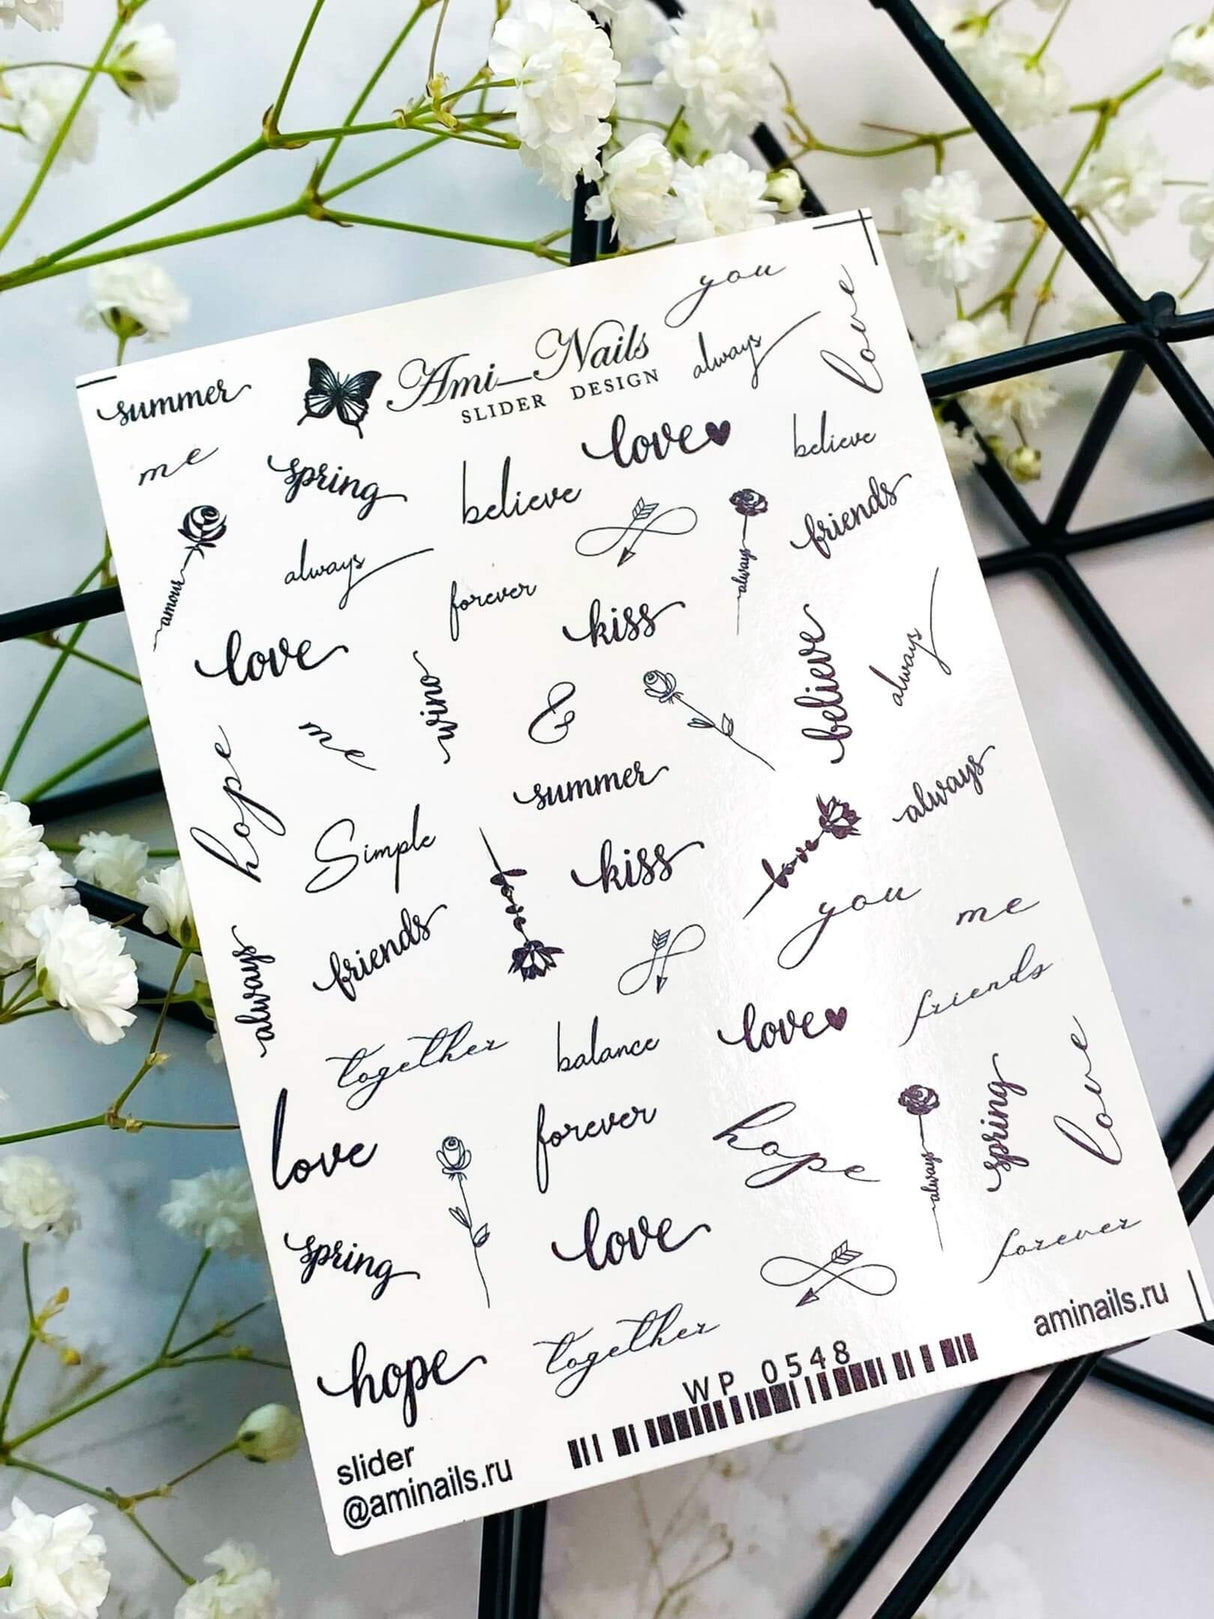 you
summer
Ami_Nails
SLIDER DESIGN
always
love
me
spring
believe
love
believe
amour
always
forever
always
friends
love
kiss
believe
always
me
wino
&
hope
summer
always
Simple
kiss
love
love
you
me
always
friends
friends
together
balance
love
love
forever
hope
always
spring
love
spring
love
forever
hope
together
WP 0548
aminails.ru
slider
@aminails.ru